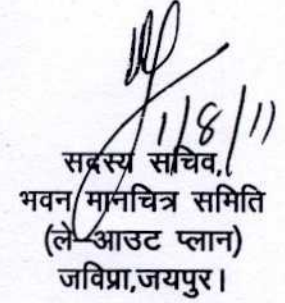 1/8/11
सदस्य सचिव,
भवन मानचित्र समिति
(ले-आउट प्लान)
जविप्रा,जयपुर।